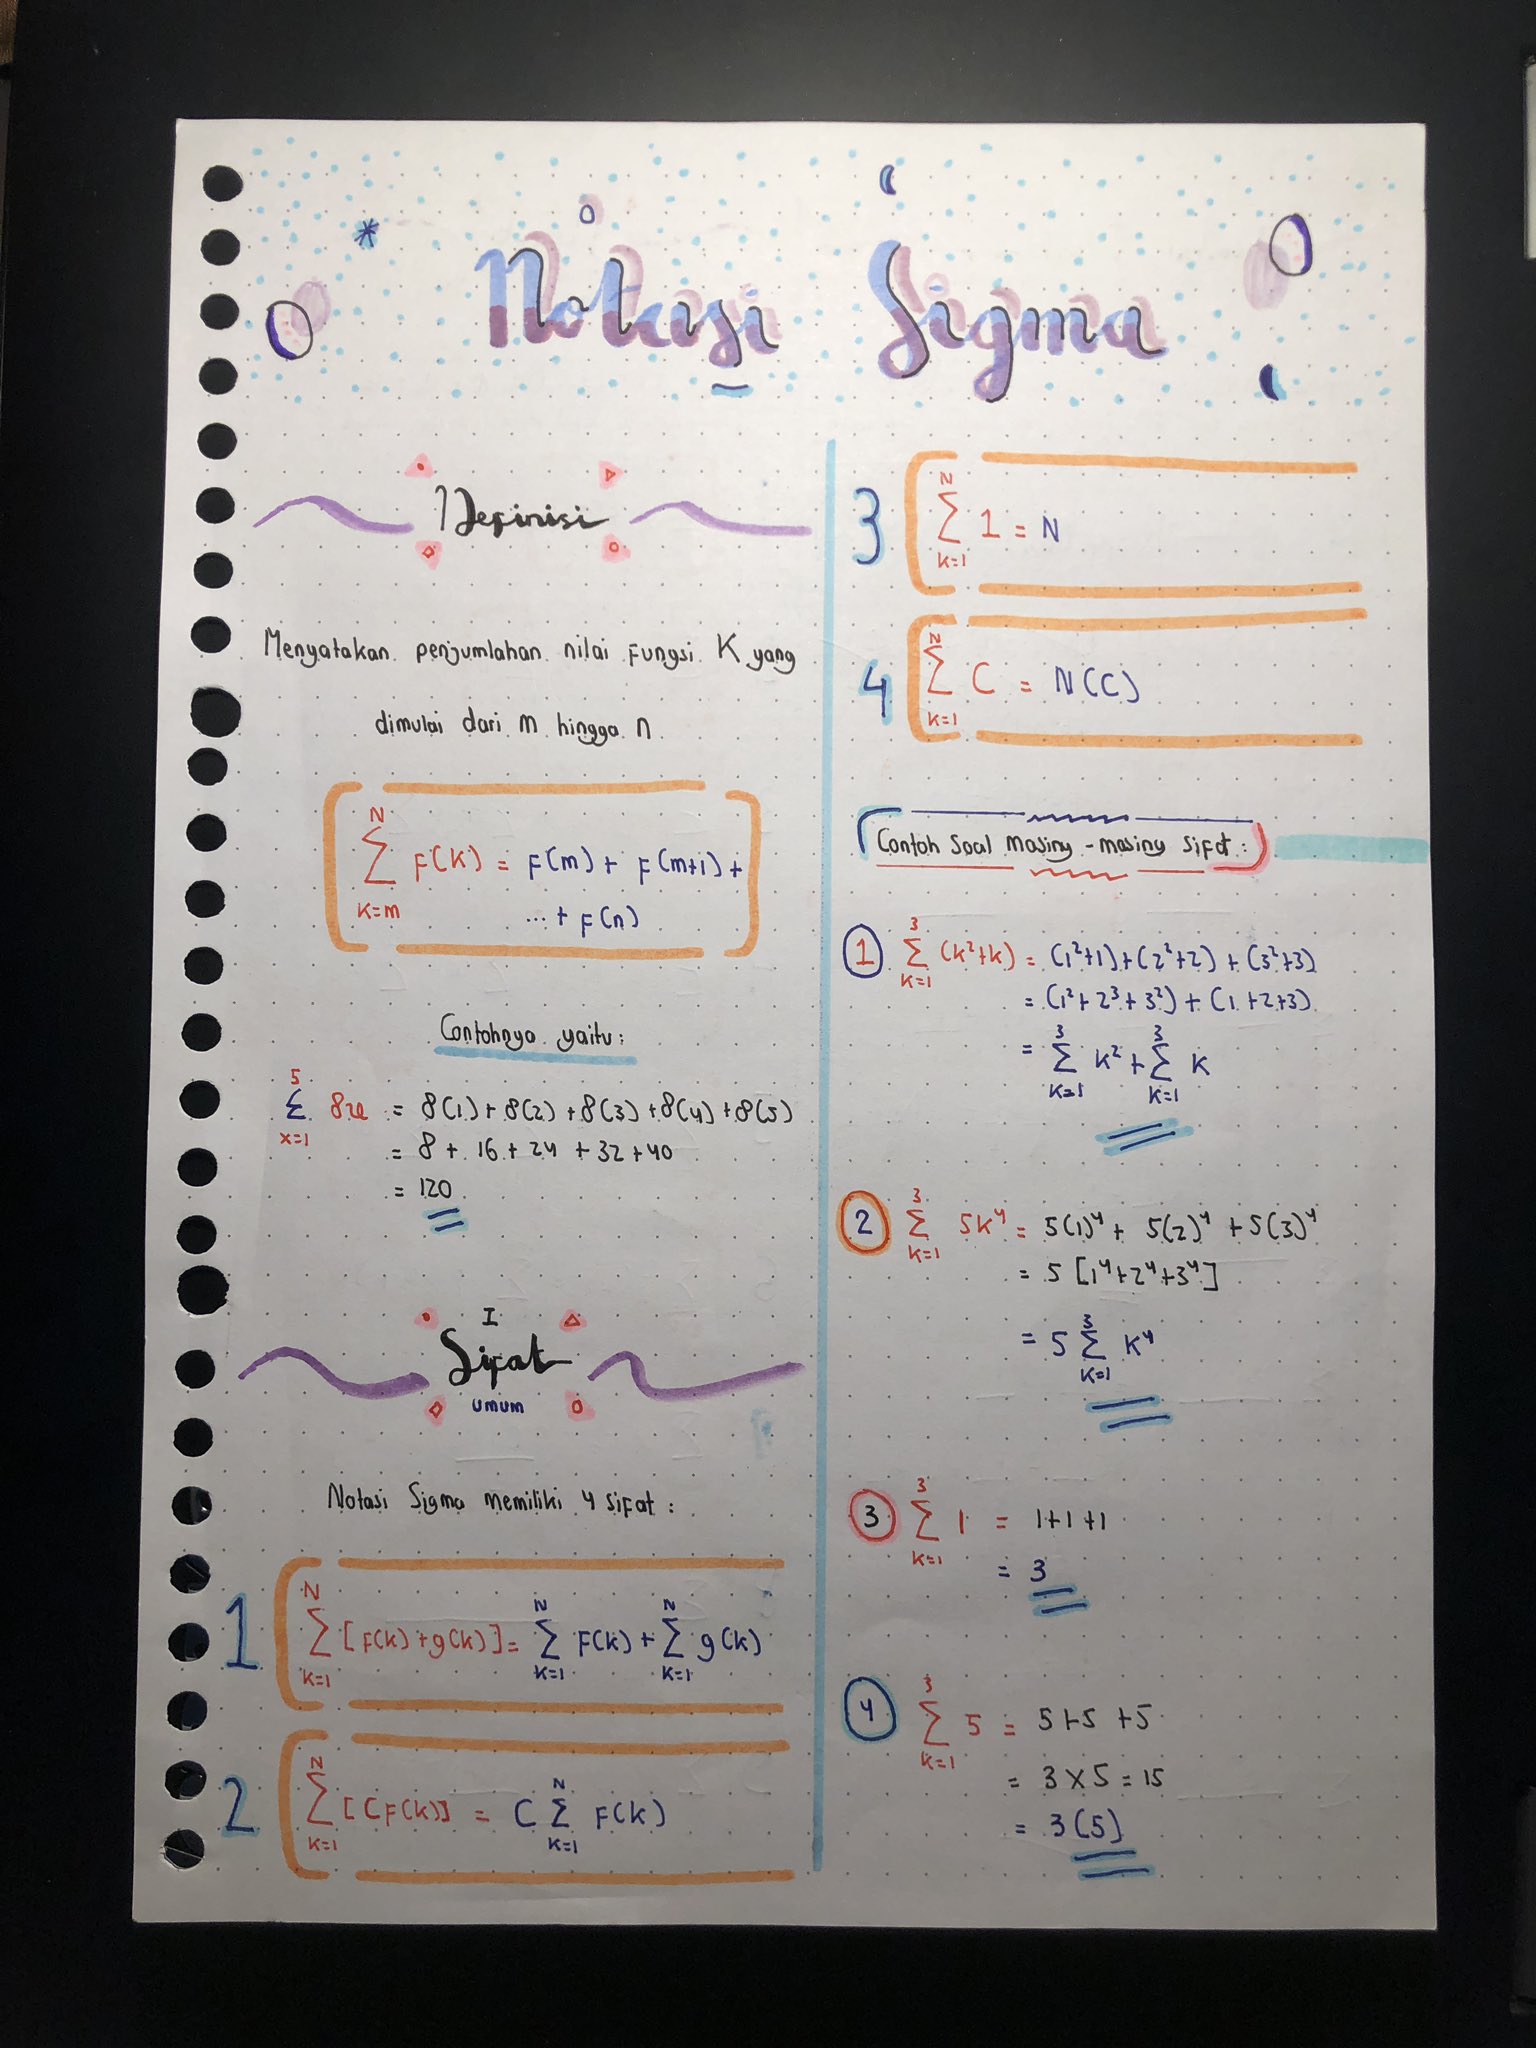 Notasi Sigma
Definisi
Menyatakan penjumlahan nilai fungsi K yang
dimulai dari m hingga n
N
∑ F(k) = F(m) + F(m+1) +
k=m
... + F(n)
Contohnya yaitu:
5
∑ 8x = 8(1) + 8(2) + 8(3) + 8(4) + 8(5)
x=1
= 8 + 16 + 24 + 32 + 40
= 120
I
Sifat
umum
Notasi Sigma memiliki 4 sifat :
N N N
1 ∑ [F(k) + g(k)] = ∑ F(k) + ∑ g(k)
k=1 k=1 k=1
N N
2 ∑ [C F(k)] = C ∑ F(k)
k=1 k=1
N
3 ∑ 1 = N
k=1
N
4 ∑ C = N(C)
k=1
Contoh Soal Masing-masing Sifat :
3
1 ∑ (k²+k) = (1²+1)+(2²+2)+(3²+3)
k=1
= (1²+2³+3²) + (1+2+3)
3 3
= ∑ k² + ∑ k
k=1 k=1
3
2 ∑ 5k⁴ = 5(1)⁴ + 5(2)⁴ + 5(3)⁴
k=1
= 5 [1⁴+2⁴+3⁴]
3
= 5 ∑ k⁴
k=1
3
3 ∑ 1 = 1+1+1
k=1
= 3
3
4 ∑ 5 = 5+5+5
k=1
= 3 x 5 = 15
= 3(5)